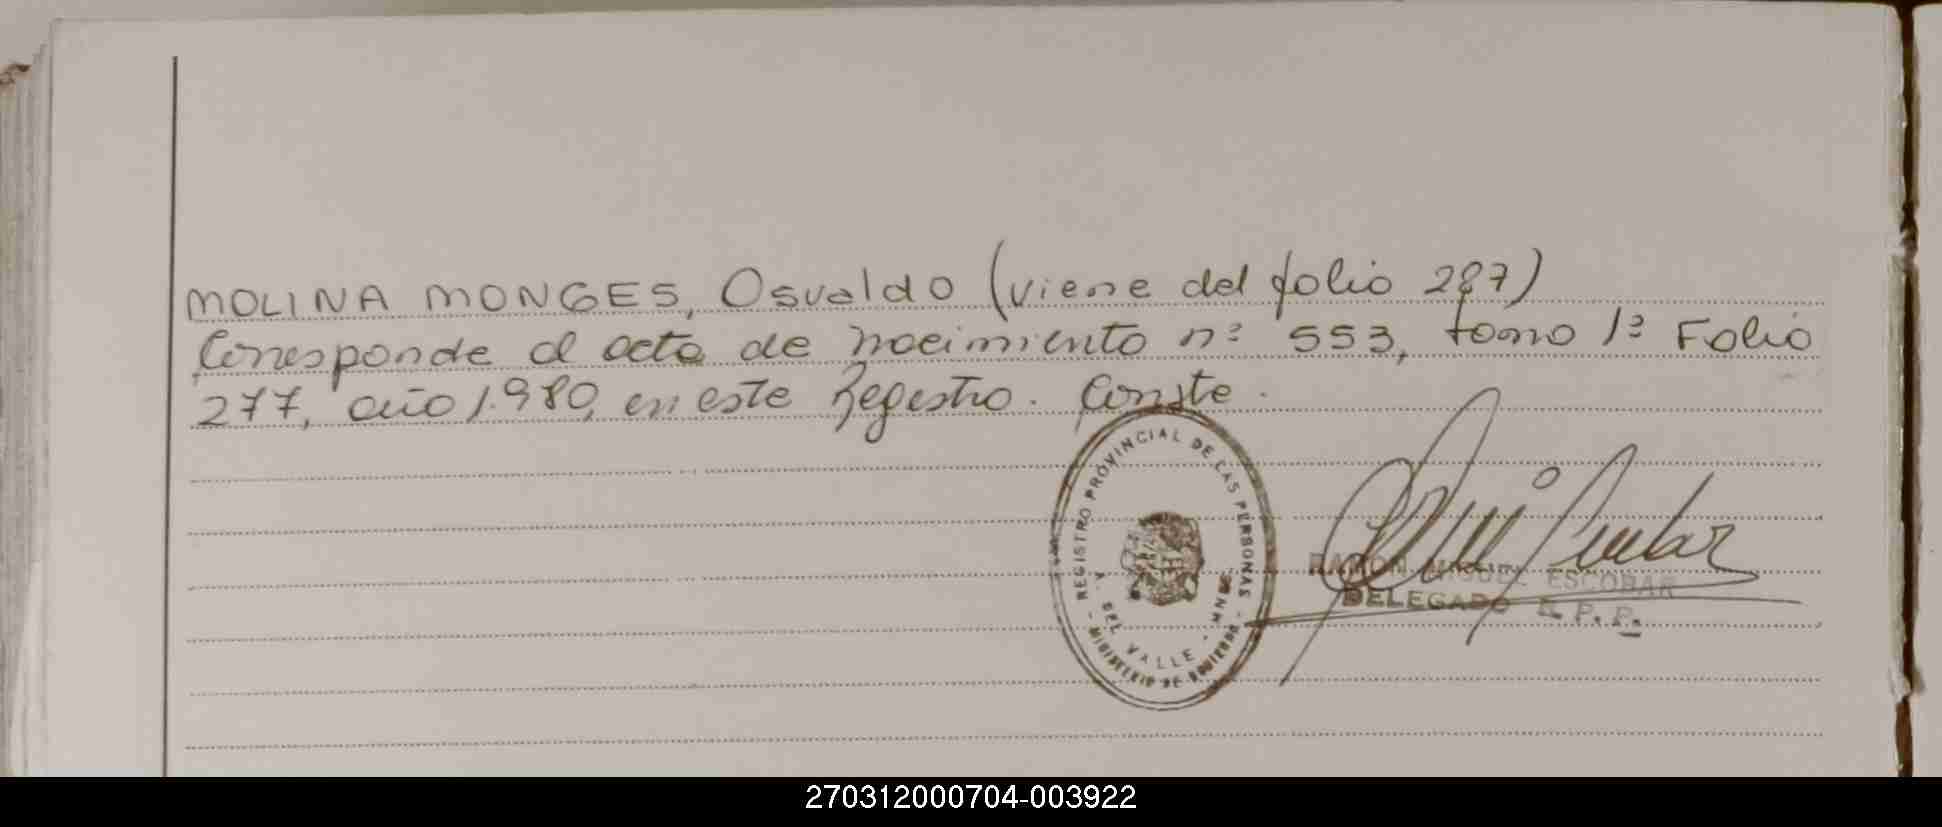 MOLINA MONGES, Osvaldo (viene del folio 287)
Corresponde al acta de nacimiento nº 553, tomo 1º Folio
277, año 1.980, en este Registro. Conste.
- REGISTRO PROVINCIAL DE LAS PERSONAS -
MINISTERIO DE GOBIERNO
DEL VALLE
RAMON MIGUEL ESCOBAR
DELEGADO R. P. P.
270312000704-003922